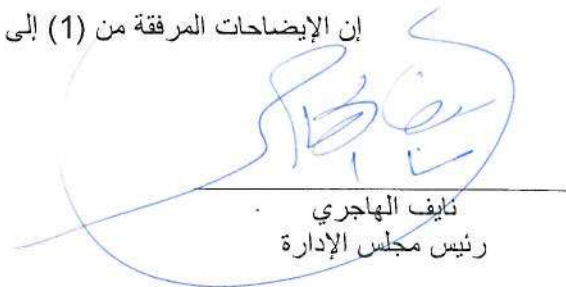 إن الإيضاحات المرفقة من (1) إلى
نايف الهاجري
رئيس مجلس الإدارة